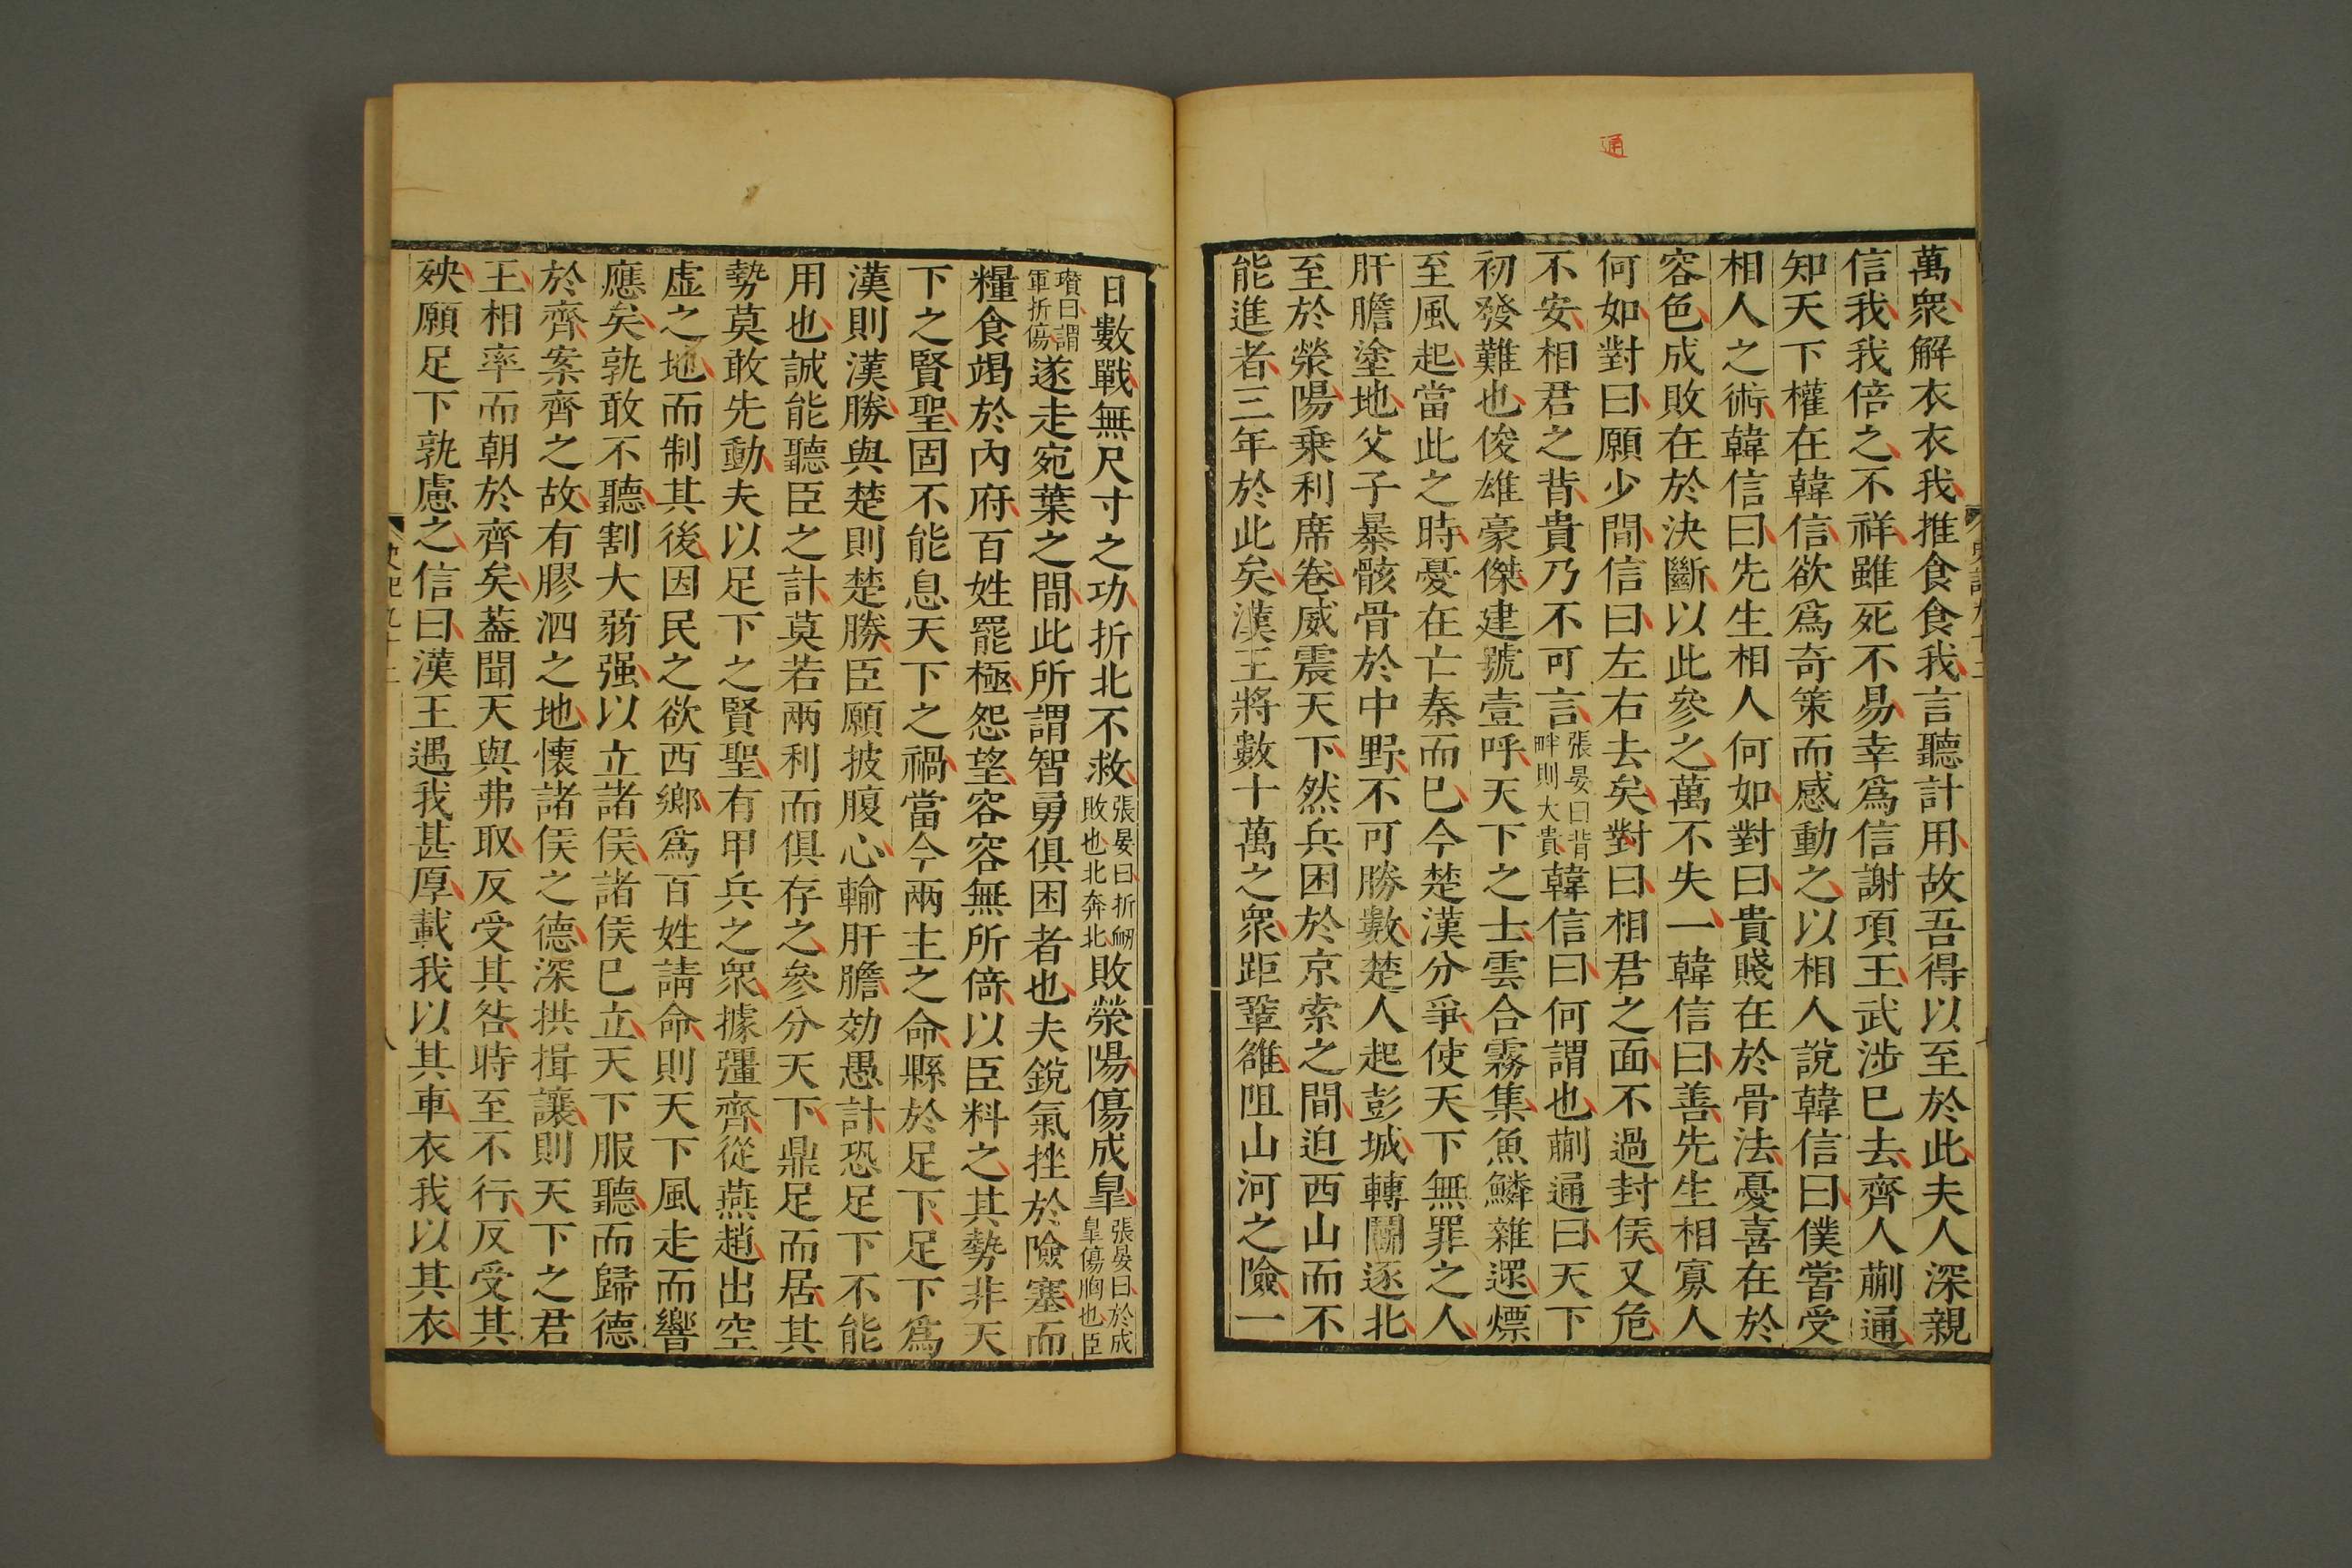 通
萬衆解衣衣我推食食我言聽計用故吾得以至於此夫人深親
信我我倍之不祥雖死不易幸爲信謝項王武涉已去齊人蒯通
知天下權在韓信欲爲奇策而感動之以相人說韓信曰僕嘗受
相人之術韓信曰先生相人何如對曰貴賤在於骨法憂喜在於
容色成敗在於決斷以此參之萬不失一韓信曰善先生相寡人
何如對曰願少間信曰左右去矣對曰相君之面不過封侯又危
不安相君之背貴乃不可言張晏曰背畔則大貴韓信曰何謂也蒯通曰天下
初發難也俊雄豪傑建號壹呼天下之士雲合霧集魚鱗雜遝熛
至風起當此之時憂在亡秦而已今楚漢分爭使天下無罪之人
肝膽塗地父子暴骸骨於中野不可勝數楚人起彭城轉鬭逐北
至於滎陽乗利席卷威震天下然兵困於京索之間迫西山而不
能進者三年於此矣漢王將數十萬之衆距鞏雒阻山河之險一
日數戰無尺寸之功折北不救張晏曰折衂敗也北奔北敗滎陽傷成皐張晏曰於成皐傷胸也臣
瓚曰謂軍折傷遂走宛葉之間此所謂智勇俱困者也夫銳氣挫於險塞而
糧食竭於內府百姓罷極怨望容容無所倚以臣料之其勢非天
下之賢聖固不能息天下之禍當今兩主之命縣於足下足下爲
漢則漢勝與楚則楚勝臣願披腹心輸肝膽効愚計恐足下不能
用也誠能聽臣之計莫若兩利而俱存之參分天下鼎足而居其
勢莫敢先動夫以足下之賢聖有甲兵之衆據彊齊從燕趙出空
虛之地而制其後因民之欲西鄉爲百姓請命則天下風走而響
應矣孰敢不聽割大弱强以立諸侯諸侯已立天下服聽而歸德
於齊案齊之故有膠泗之地懷諸侯之德深拱揖讓則天下之君
王相率而朝於齊矣葢聞天與弗取反受其咎時至不行反受其
殃願足下孰慮之信曰漢王遇我甚厚載我以其車衣我以其衣